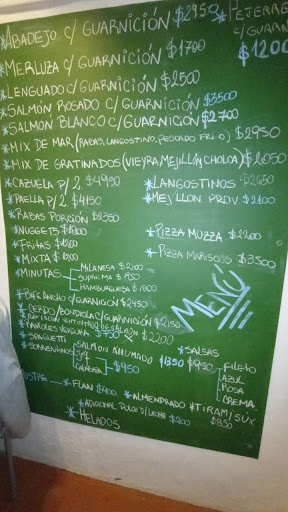 *ABADEJO C/GUARNICIÓN $2950
*PEJERRE
C/GUARN
$1200
*MERLUZA C/ GUARNICIÓN $1700
*LENGUADO C/GUARNICIÓN $2500
*SALMÓN ROSADO C/GUARNICIÓN $3500
*SALMÓN BLANCO C/GUARNICIÓN $2700
*MIX DE MAR (RABAS, LANGOSTINO, PESCADO FRITO) $2950
*MIX DE GRATINADOS (VIEYRA MEJILLÓN CHOLGA)
*CAZUELA P/2 $4950
*LANGOSTINOS
*PAELLA P/2 $4150
*MEJILLON PROV $2100
*RABAS PORCIÓN $2350
*NUGGETS
*PIZZA MUZZA $2200
*FRITAS
*MIXTA
*PIZZA MARISCOS $3500
*MINUTAS
MILANESA
SUPREMA
HAMBURGUESA
MENÚ
*BIFE ANCHO C/GUARNICIÓN $2450
*CERDO/BONDIOLA C/GUARNICIÓN $2150
DE SALMÓN $2200
VERDURA $1750
*SPAGUETTI
*SORRENTINOS
SALMON AHUMADO $1350
CALABAZA
$950
*SALSAS
$950
FILETO
AZUL
ROSA
CREMA
*FLAN $400
*ALMENDRADO
*TIRAMISÚ
*ADICIONAL DULCE D/LECHE $200
$850
*HELADOS